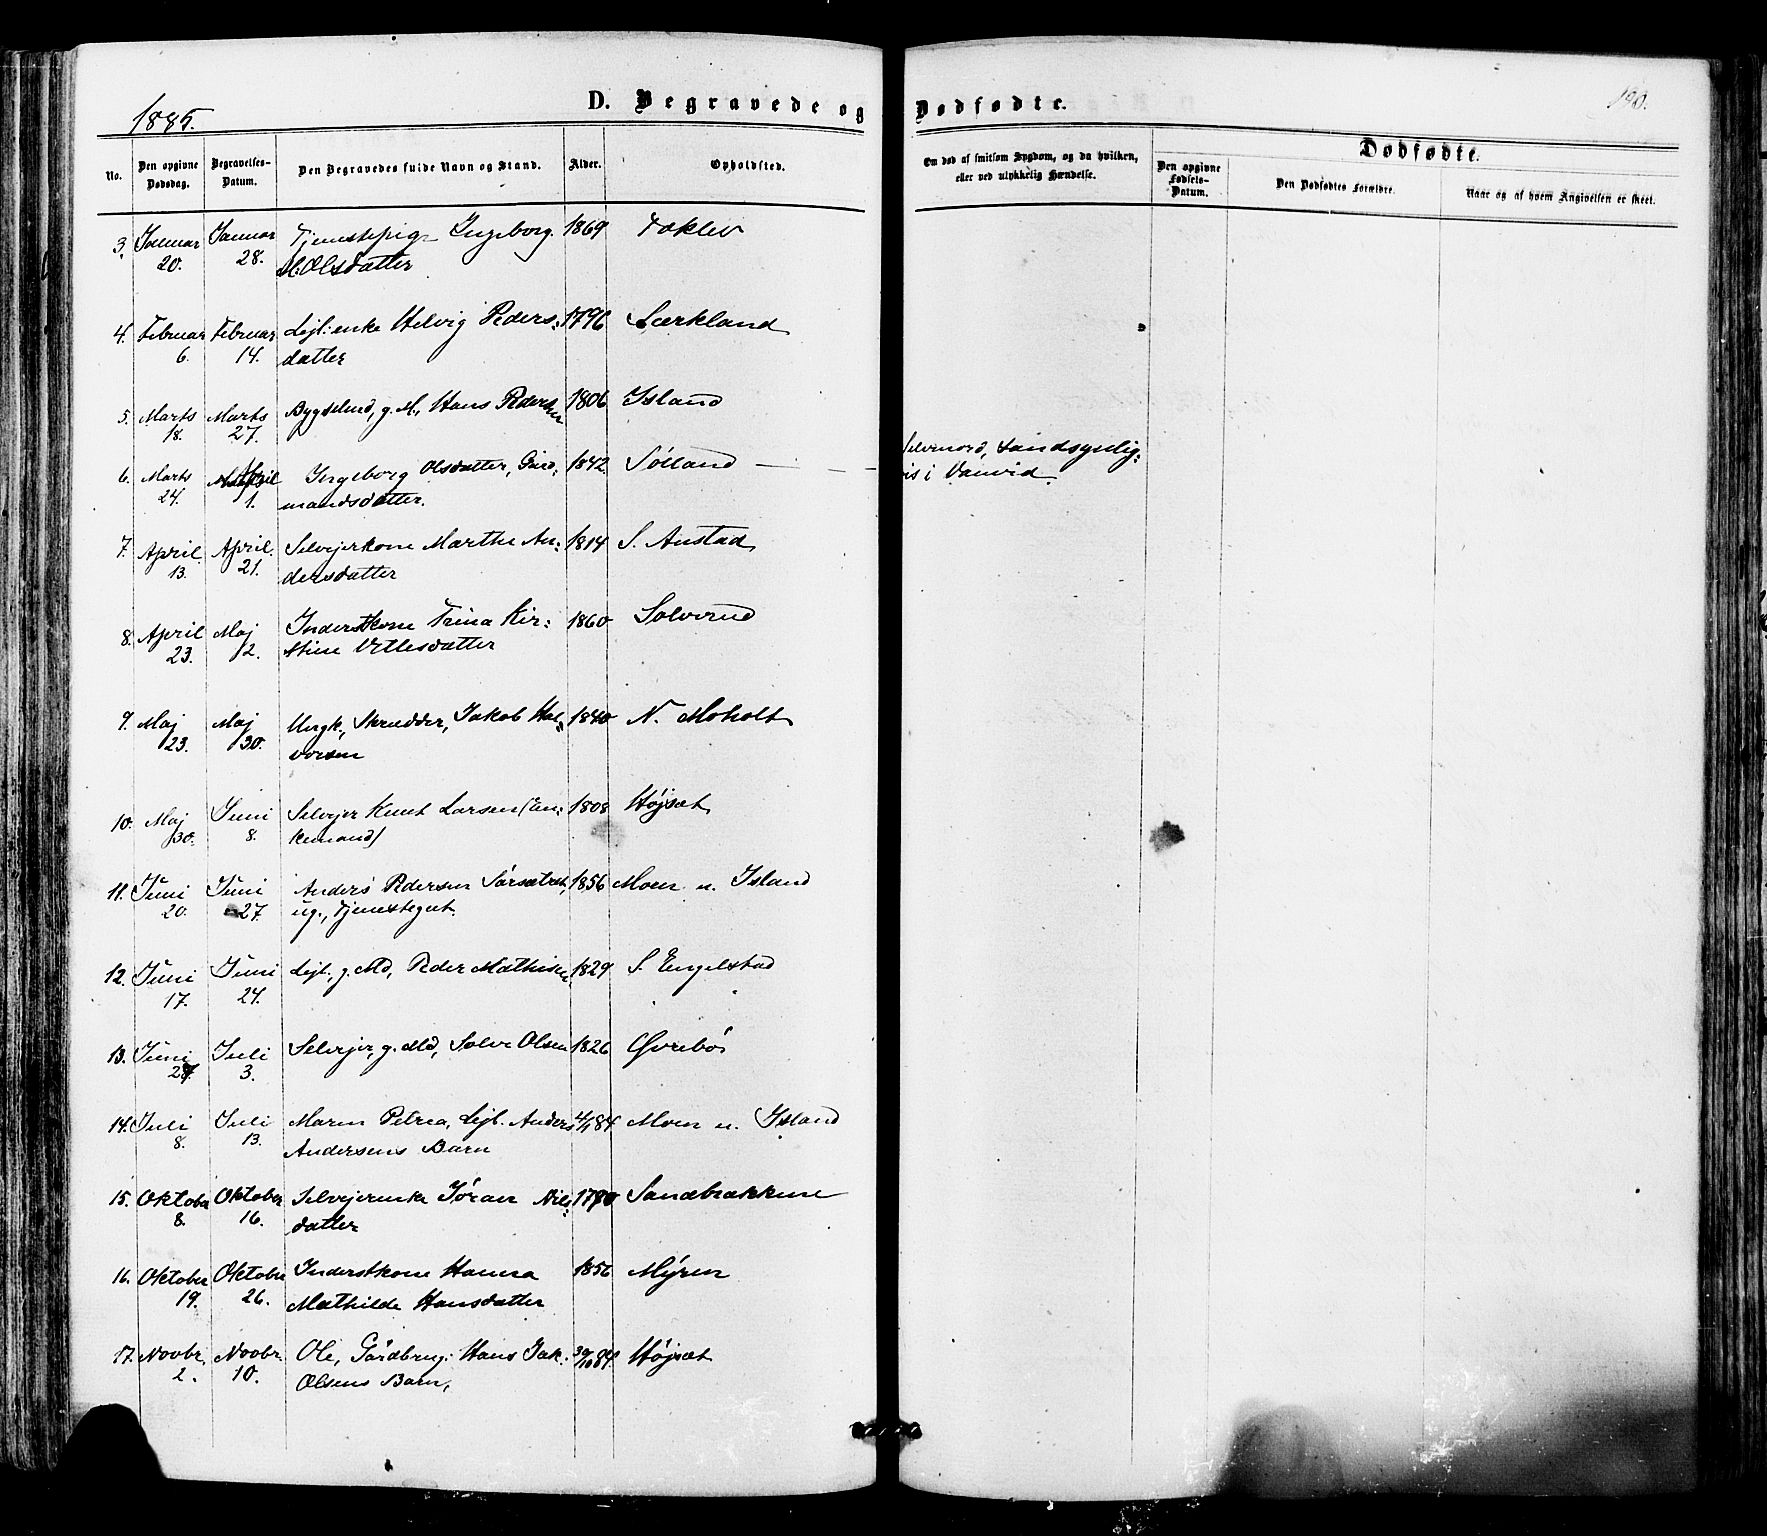 1885.
D. Begravede og Dødfødte.
190.
No.
Den opgivne Dødsdag.
Begravelses-Datum.
Den Begravedes fulde Navn og Stand.
Alder.
Opholdsted.
Om død af smitsom Sygdom, og da hvilken,
eller ved ulykkelig Hændelse.
Dødfødte.
Den opgivne Fødsels-Datum.
Den Dødfødtes Forældre.
Naar og af hvem Angivelsen er skeet.
3. Januar Januar Tjenestepige Ingeborg 1869 Foklev
20. 28. M. Olsdatter
4. Februar Februar Lejl: enke Helvig Peders: 1796 Særkland
6. 14. datter
5. Marts Marts Bygselmd, g. M., Hans Pedersen 1806 Island
18. 27.
6. Marts April Ingeborg Olsdatter, Gård: 1842 Sölland — — Selvmord, sandsynlig:
24. 1. mandsdatter. vis i Vanvid.
7. April April Selvejerkone Marthe An: 1814 S. Anstad
13. 21. dersdatter
8. April Maj Inderstkone Trina Kir: 1860 Solverud
23. 2. stine Vetlesdatter
9. Maj Maj Ungk., Skrædder, Jakob Hal 1840 N. Moholt
23. 30. vorsen
10. Maj Juni Selvejer Knut Larsen (En: 1808 Højsæt
30. 8. kemand)
11. Juni Juni Anders Pedersen Sørsætret, 1856 Moen u. Island
20. 27. ug., Tjenestegut.
12. Juni Juni Lejl., g. Md, Peder Mathisen 1829 S. Engelstad
17. 24.
13. Juni Juli Selvejer, g. Md, Solve Olsen 1826 Øvrebö
27. 3.
14. Juli Juli Maren Petrea, Lejl. Anders 4/1 84 Moen u. Island
8. 13. Andersens Barn
15. Oktober Oktober Selvejerenke Jöran Niels 1790 Sandbrækkene
8. 16. datter
16. Oktober Oktober Inderstkone Hanna 1856 Mýren
19. 26. Mathilde Hansdatter
17. Novbr. Novbr. Ole, Gårdbrug: Hans Jak. 30/10 84 Højsæt
2. 10. Olsens Barn,